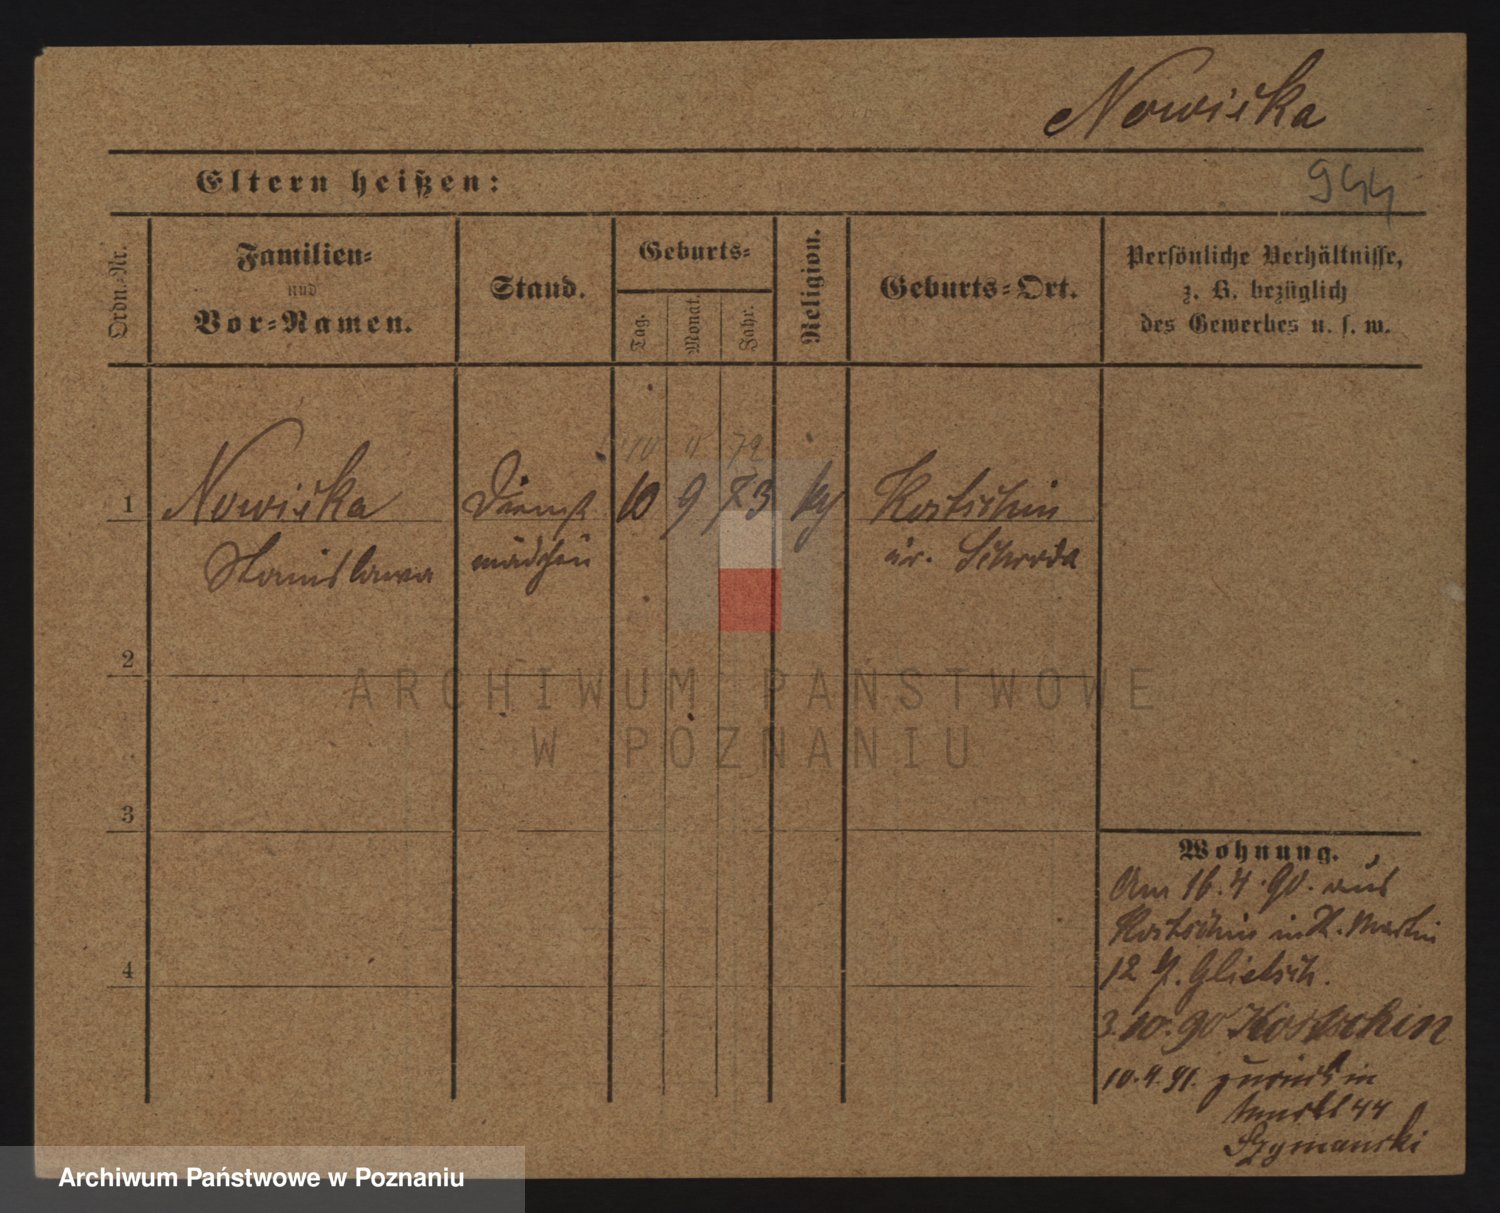 Nowicka
944
Eltern heißen:
Ordn.-Nr.
Familien-
und
Vor-Namen.
Stand.
Geburts-
Tag.
Monat.
Jahr.
Religion.
Geburts-Ort.
Persönliche Verhältnisse,
z. B. bezüglich
des Gewerbes u. s. w.
10 72
1 Nowicka Dienst 10 9 73 Kostschin
Stanislawa mädchen Schroda
2
ARCHIWUM PAŃSTWOWE
W POZNANIU
3
Wohnung.
Am 16.4.90. aus
Kostschin in St. Martin
12 Glietsch.
3.10.90 Kostschin
4
10.4.91. zurück in
44
Szymanski
Archiwum Państwowe w Poznaniu